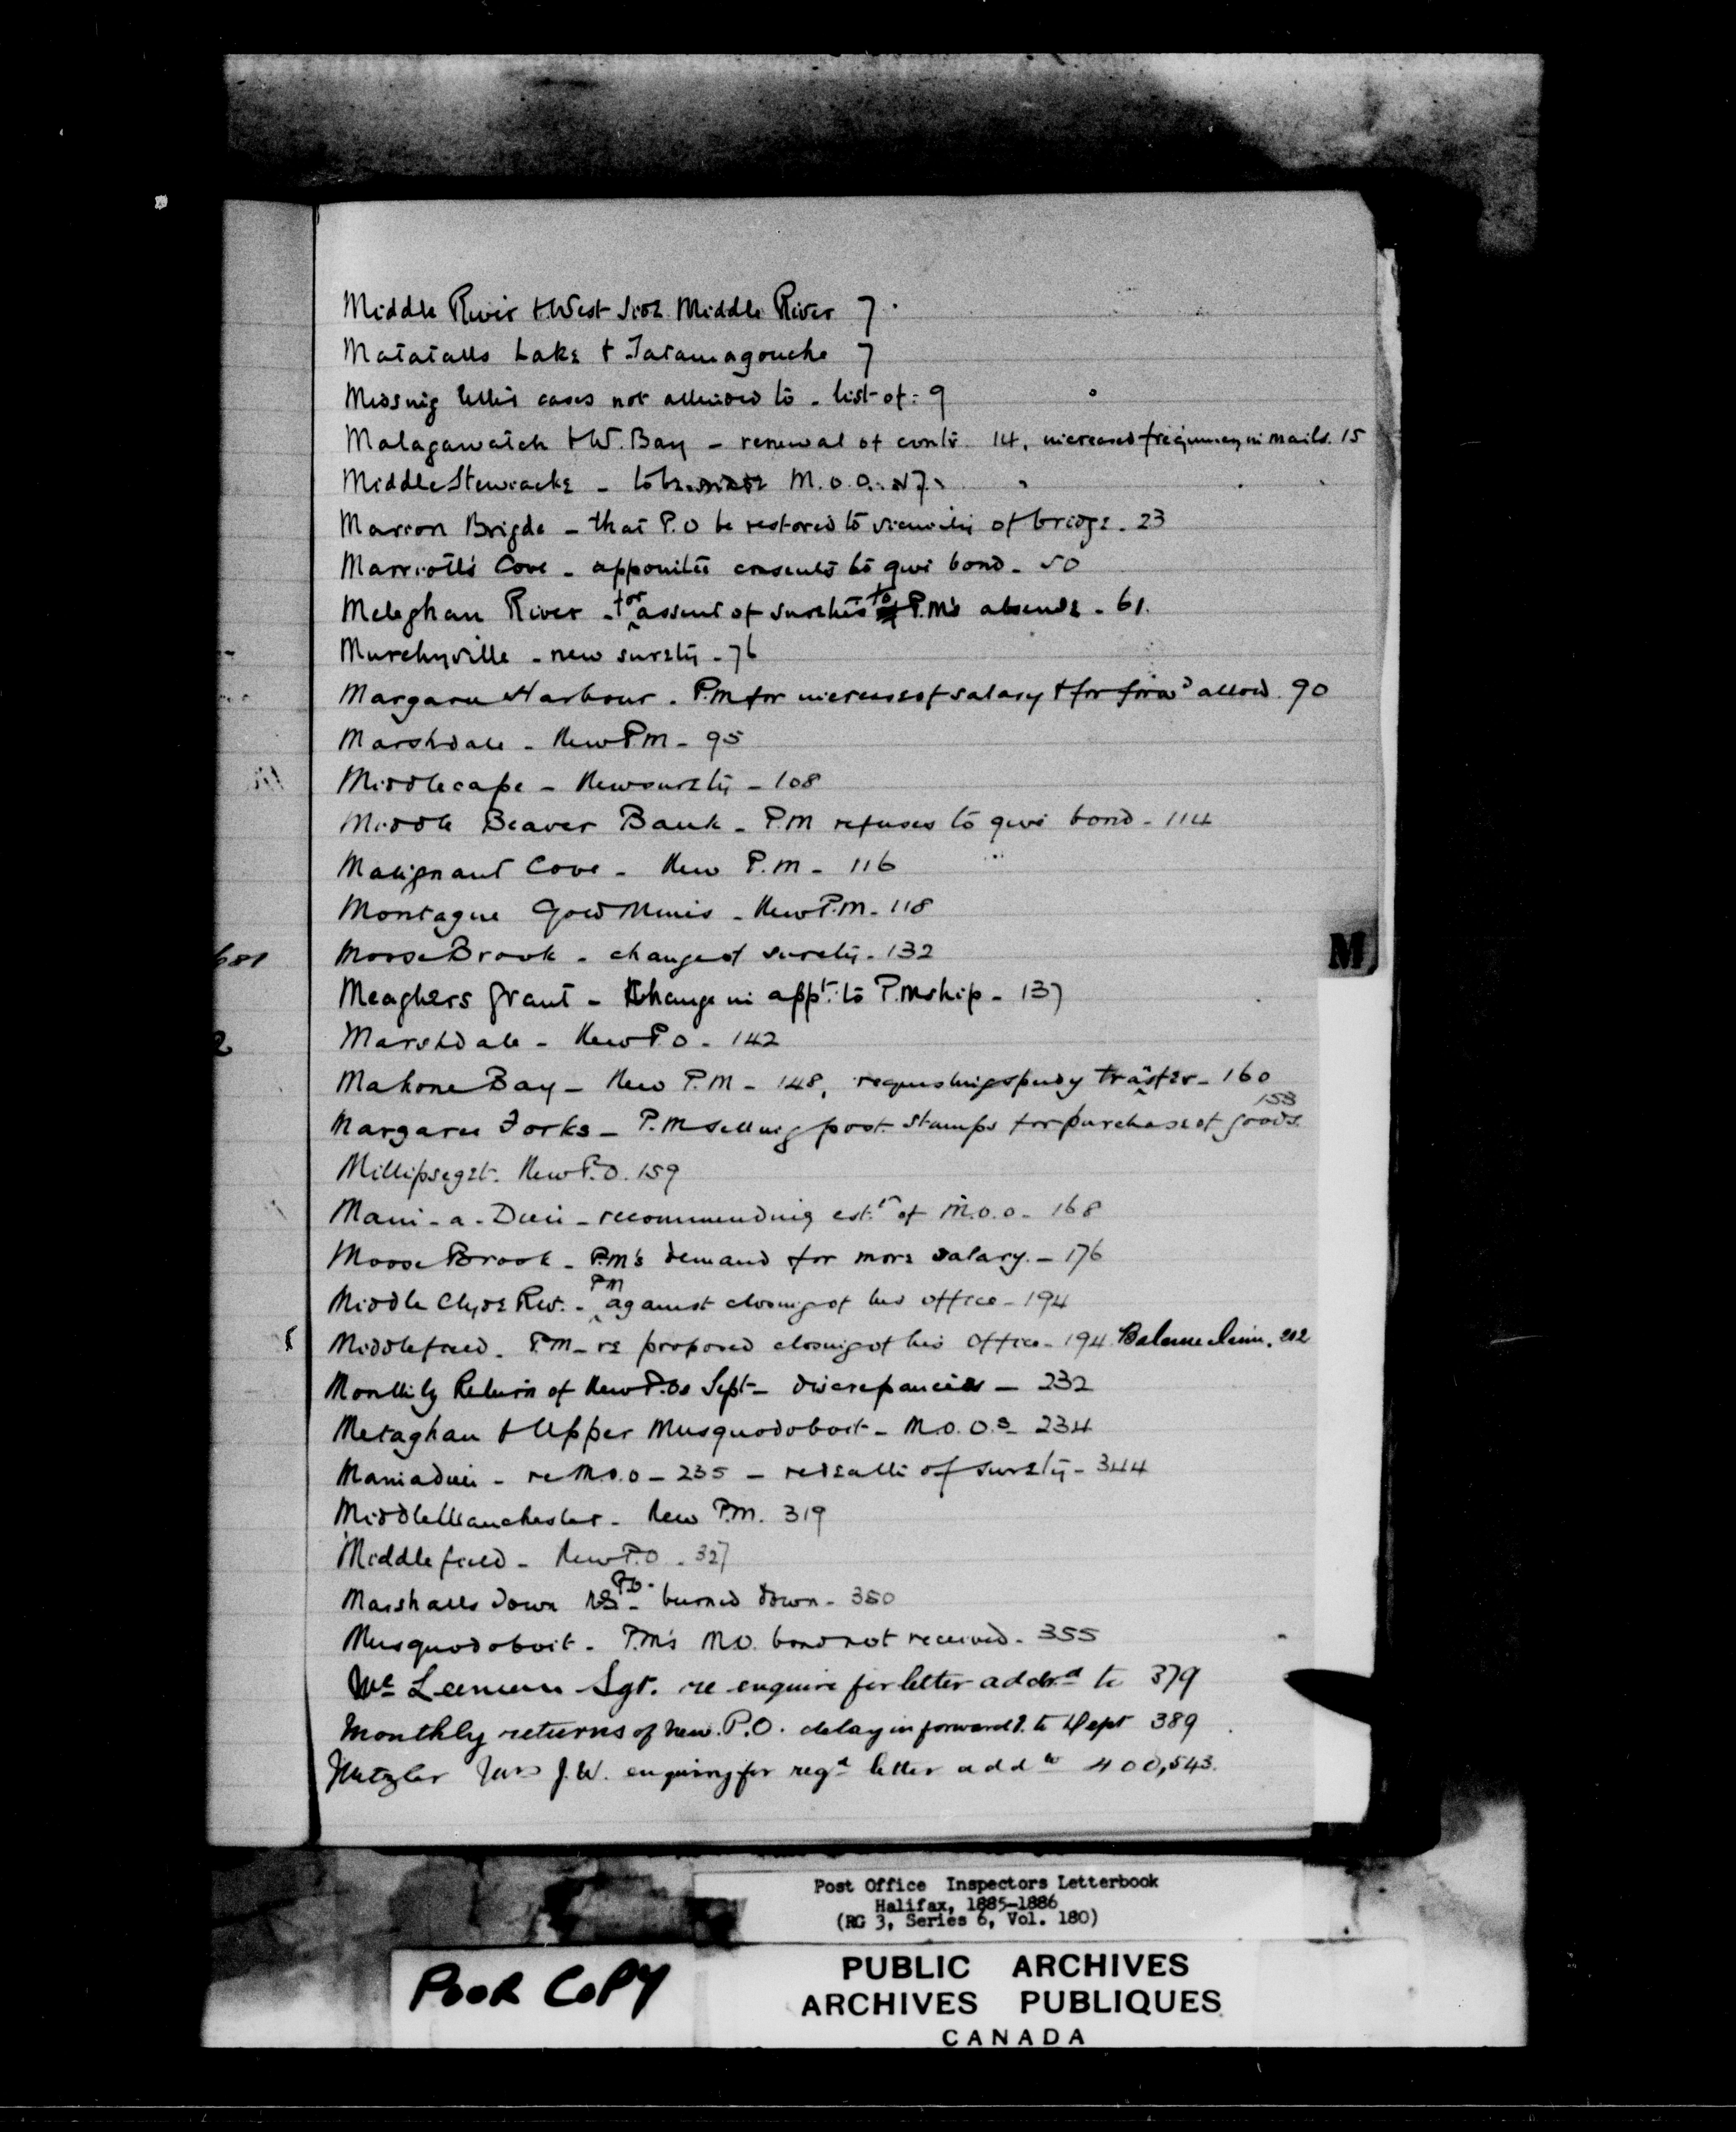 Middle River & West Side Middle River 7.
Matatalls Lake & Tatamagouche 7
Missing letter cases not attended to - list of: 9
Malagawatch & W. Bay - renewal of contr. 14, increased frequency in mails. 15
Middle Stewiacke - to be M.O.O. 17.
Marion Brigde - that P.O be restored to vicinity of bridge - 23
Marriott's Cove - appointee consents to give bond - 50
Meteghan River - for assent of sureties to P.M's absence - 61.
Murchyville - new surety - 76
Margaree Harbour - P.M for increase of salary & for forwd allow. 90
Marshdale - New P.M - 95
Middle cape - New surety - 108
Middle Beaver Bank - P.M refuses to give bond - 114
Malignant Cove - New P.M - 116
Montague Gold Mines - New P.M - 118
681
Moose Brook - change of surety - 132
M
Meaghers Grant - Change in appt. to P.Mship - 137
2
Marshdale - New P.O - 142
Mahone Bay - New P.M - 148, requesting speedy trasfer - 160
Margaree Forks - P.M selling post. stamps for purchase of goods. 153
Millipseget. New P.O. 159
Mani-a-Dieu - recommending est.t of M.O.O - 168
Moose Brook - P.M's demand for more salary. - 176
Middle Clyde Riv. - PM against closing of his office - 194
Middlefield. P.M - re proposed closing of his Office - 194 Balance 202
Monthly Return of New P.Os Sept - discrepancies - 232
Metaghan & Upper Musquodoboit - M.O.Os - 234
Maniadieu - re M.O.O - 235 - re death of surety - 344
Middle Manchester - New P.M. 319
Middle field - New P.O - 327
Marshalls Town P.O. - burned down - 350
Musquodoboit - P.M's M.O. bond not received - 355
Mc Leeman Sgt. re enquire for letter addrd to 379
Monthly returns of new P.O. delay in forwardg. to Dept 389
Metzler Mrs J.W. enquiring for regd letter add 400,543.
Post Office Inspectors Letterbook
Halifax, 1885-1886
(RG 3, Series 6, Vol. 180)
POOR COPY
PUBLIC ARCHIVES
ARCHIVES PUBLIQUES
CANADA